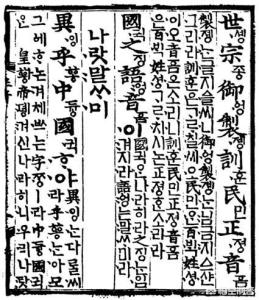 世솅宗조ᇰ御ᅌᅥᆼ製졩訓훈民민正져ᇰ音ᅙᅳᆷ
製졩ᄂᆞᆫ글지ᅀᅳᆯ씨니御ᅌᅥᆼ製졩ᄂᆞᆫ님금지ᅀᅳ샨
그리라訓훈ᄋᆞᆫᄀᆞᄅᆞ칠씨오民민ᄋᆞᆫ百ᄇᆡᆨ姓셔ᇰ
이오音ᅙᅳᆷ은소리니訓훈民민正져ᇰ音ᅙᅳᆷ
은百ᄇᆡᆨ姓셔ᇰᄀᆞᄅᆞ치시논正져ᇰᄒᆞᆫ소리라
國귁之징語ᅌᅥᆼ音ᅙᅳᆷ이
國귁ᄋᆞᆫ나라히라之징ᄂᆞᆫ입
겨지라語ᅌᅥᆼ는말ᄊᆞ미라
나랏말ᄊᆞ미
異잉乎ᅘᅩᆼ中듀ᇰ國귁ᄒᆞ야
異잉ᄂᆞᆫ다ᄅᆞᆯ씨
라乎ᅘᅩᆼᄂᆞᆫ아모
그ᅌᅦᄒᆞ논겨체쓰는字ᄍᆞᆼㅣ라中듀ᇰ國귁
ᄋᆞᆫ皇ᅘᅪᇰ帝뎽겨신나라히니우리나랏